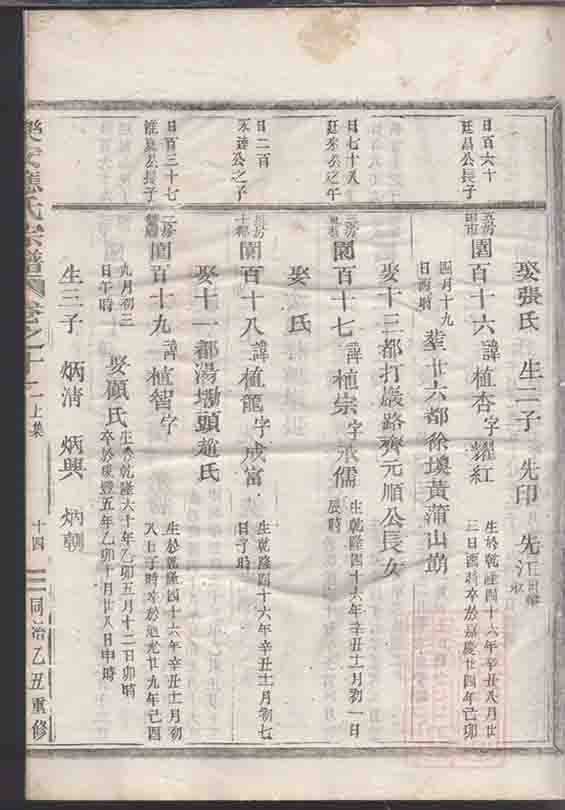 娶張氏 生二子 先印 先江
日百六十
廷昌公長子
園百十六 諱植杏字耀紅
生於乾隆四十六年辛丑八月廿
三日酉時卒於嘉慶廿四年己卯
四月十九
日酉時
葬廿六都徐墺黃蒲山崩
娶十三都打巖路齊元順公長女
日七十八
園百十七 諱植宗字承儒
生乾隆四十六年辛丑十一月初一日
辰時
娶 氏
日二百
永達公之子
園百十八 諱植龍字成富
生乾隆四十六年辛丑十一月初七
日子時
娶十一都湯㘭頭趙氏
日百三十七
公長子
園百十九 諱植智字
生於乾隆四十六年辛丑十一月初
八上子時卒於道光廿九年己酉
九月初三
日午時
娶顧氏
生于乾隆六十年乙卯五月十二日卯時
卒於咸豐五年乙卯十月廿八日申時
生三子 炳清 炳興 炳朝
樂安應氏宗譜 卷之十一 上集 十四 同治乙丑重修